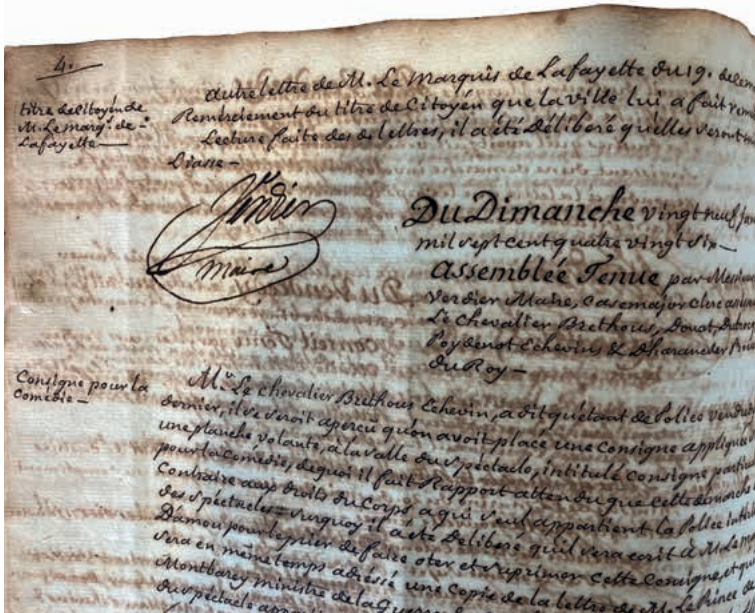 4.
titre de Citoyen de
M. Le Marq. de
Lafayette
autre lettre de M. Le Marquis de Lafayette du 19.
Remerciement du titre de Citoyen que la ville lui a fait
Lecture faite des d. lettres, il a été Délibéré qu'elles seront
Liasse
Verdier
maire
Du Dimanche vingt neuf
mil sept cent quatre vingt six
assemblée Tenue par
Verdier Maire, Casemajor Clerc
Le Chevalier Brethous, Douat,
Poydenot Echevins & Dharaneder
du Roy
Consigne pour la
Comedie
Mr. Le Chevalier Brethous Echevin, a dit qu'etant de Police
dernier, il se seroit aperçu qu'on avoit placé une Consigne
une planche volante, à la salle du spectacle, intitulé Consigne
pour la Comedie, dequoi il fait Rapport attendu que Cette demarche
Contraire aux droits du Corps a qui seul appartient la Police
des spectacles surquoy il a été Deliberé qu'il sera ecrit à M. Le
Damou pour le prier de faire oter et suprimer Cette Consigne, et
sera en meme temps adréssé une Copie de la lettre de Le Prince
Montbarey ministre de la Guerre
du spectacle